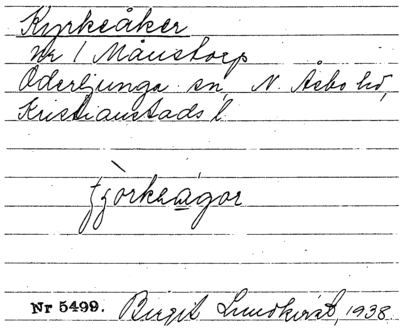 Kyrkeåker
nr 1 Månstorp
Oderljunga sn, N. Åsbo hd,
Kristianstads l
Nr 5499. Birgit Lundkvist, 1938.